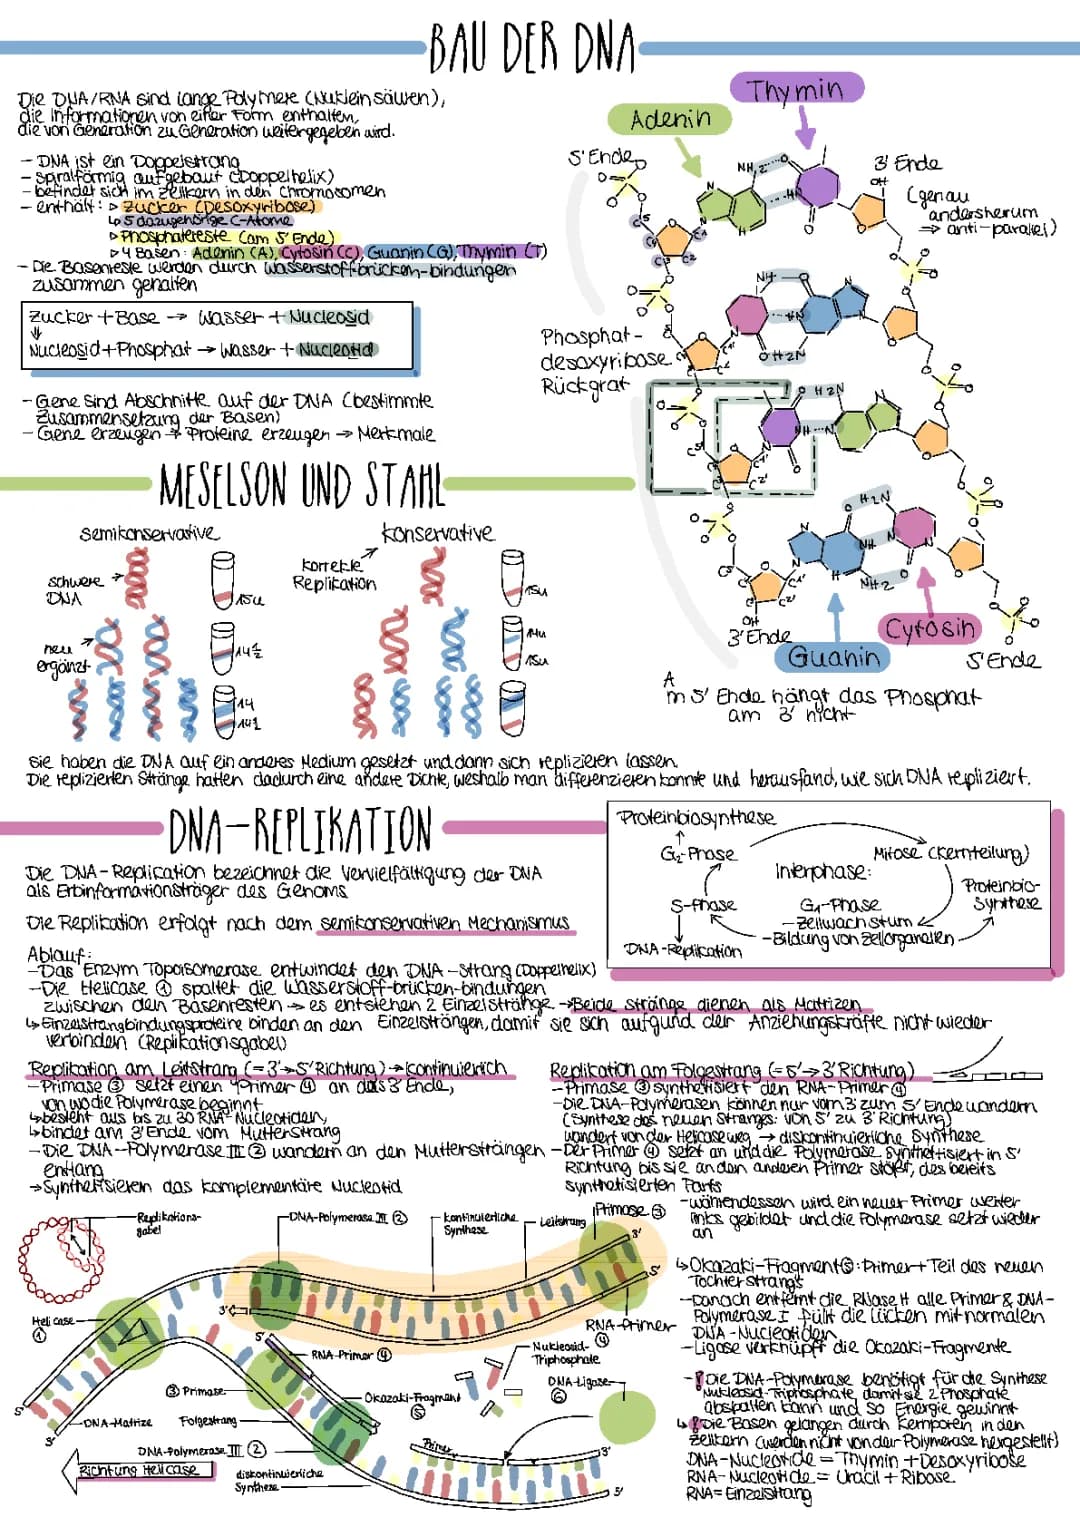 BAU DER DNA
Die DNA/RNA sind lange Polymere (Nukleinsäuren),
die Informationen von einer Form enthalten,
die von Generation zu Generation weitergegeben wird.
- DNA ist ein Doppelstrang
- spiralförmig aufgebaut (Doppelhelix)
- befindet sich im Zellkern in den Chromosomen
- enthält: ▹ Zucker (Desoxyribose)
↳ 5 dazugehörige C-Atome
▹ Phosphatreste (am 5' Ende)
▹ 4 Basen: Adenin (A), Cytosin (C), Guanin (G), Thymin (T)
- Die Basenreste werden durch Wasserstoff-brücken-bindungen
zusammen gehalten
Zucker + Base → Wasser + Nucleosid
↓
Nucleosid + Phosphat → Wasser + Nucleotid
- Gene sind Abschnitte auf der DNA (bestimmte
Zusammensetzung der Basen)
- Gene erzeugen → Proteine erzeugen → Merkmale
Thymin
Adenin
5' Ende
3' Ende
(genau
andersherum
⇒ anti-parallel)
Phosphat-
desoxyribose
Rückgrat
3' Ende
Guanin
Cytosin
5' Ende
Am 5' Ende hängt das Phosphat
am 3' nicht
MESELSON UND STAHL
semikonservative
konservative
schwere
DNA
korrekte
Replikation
neu
ergänzt
Sie haben die DNA auf ein anderes Medium gesetzt und dann sich replizieren lassen.
Die replizierten Stränge hatten dadurch eine andere Dichte, weshalb man differenzieren konnte und herausfand, wie sich DNA repliziert.
DNA-REPLIKATION
Die DNA-Replication bezeichnet die Vervielfältigung der DNA
als Erbinformationsträger des Genoms
Die Replikation erfolgt nach dem semikonservativen Mechanismus
Proteinbiosynthese
G₂-Phase
Mitose (Kernteilung)
Interphase:
S-Phase
G₁-Phase
- Zellwachstum
- Bildung von Zellorganellen
Proteinbio-
Synthese
DNA-Replikation
Ablauf:
- Das Enzym Topoisomerase entwindet den DNA-Strang (Doppelhelix)
- Die Helicase ① spaltet die Wasserstoff-brücken-bindungen
zwischen den Basenresten → es entstehen 2 Einzelstränge → Beide stränge dienen als Matrizen
↳ Einzelstrangbindungsproteine binden an den Einzelsträngen, damit sie sich aufgrund der Anziehungskräfte nicht wieder
verbinden (Replikationsgabel)
Replikation am Leitstrang (= 3' → 5' Richtung) → kontinuierlich
- Primase ③ setzt einen Primer ④ an das 3' Ende,
von wo die Polymerase beginnt
↳ besteht aus bis zu 30 RNA-Nucleotiden
↳ bindet am 3' Ende vom Mutterstrang
- Die DNA-Polymerase III ② wandern an den Muttersträngen
entlang
→ Synthetisieren das komplementäre Nucleotid
Replikation am Folgestrang (= 5' → 3' Richtung)
- Primase ③ synthetisiert den RNA-Primer ④
- Die DNA-Polymerasen können nur vom 3' zum 5' Ende wandern
(Synthese des neuen Strangs: von 5' zu 3' Richtung)
wandert von der Helicase weg → diskontinuierliche Synthese
- Der Primer ④ setzt an und die Polymerase synthetisiert in 5'
Richtung bis sie an den anderen Primer stößt, des bereits
synthetisierten Parts
- währendessen wird ein neuer Primer weiter
links gebildet und die Polymerase setzt wieder
an
↳ Okazaki-Fragment ⑤: Primer + Teil des neuen
Tochterstrangs
- Danach entfernt die RNase H alle Primer & DNA-
Polymerase I füllt die Lücken mit normalen
DNA-Nucleotiden
- Ligase verknüpft die Okazaki-Fragmente
- ! Die DNA-Polymerase benötigt für die Synthese
Nukleosid-Triphosphate, damit sie 2 Phosphate
abspalten kann und so Energie gewinnt
↳ ! Die Basen gelangen durch Kernporen in den
Zellkern (werden nicht von der Polymerase hergestellt)
DNA-Nucleotide = Thymin + Desoxyribose
RNA-Nucleotide = Uracil + Ribose
RNA = Einzelstrang
Replikations-
gabel
DNA-Polymerase III ②
kontinuierliche
Synthese
Leitstrang
Primase ③
3'
5'
Helicase
①
3'
5'
RNA-Primer
④
RNA-Primer ④
Nukleosid-
Triphosphate
DNA-Ligase
⑥
③ Primase
Okazaki-Fragment
⑤
5'
3'
DNA-Matrize
Folgestrang
Primer
3'
5'
DNA-Polymerase III ②
Richtung Helicase
diskontinuierliche
Synthese